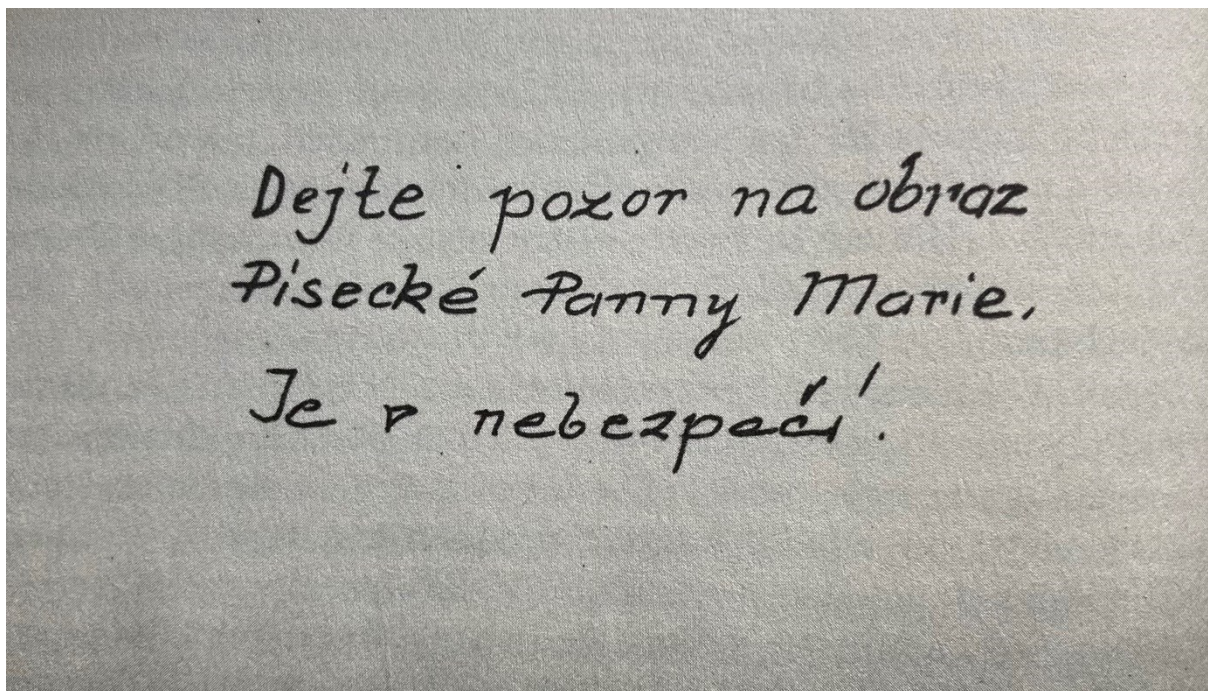 Dejte pozor na obraz
Písecké Panny Marie.
Je v nebezpečí.